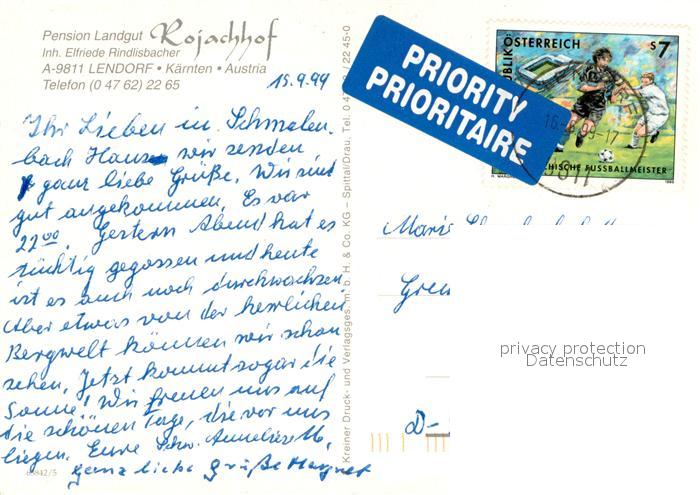 Pension Landgut Rojachhof
Inh. Elfriede Rindlisbacher
A-9811 LENDORF • Kärnten • Austria
Telefon (0 47 62) 22 65
15.9.99
Ihr Lieben in Schmalen-
bach Hause wir senden
ganz liebe Grüße. Wir sind
gut angekommen. Es war
22⁰⁰. Gestern Abend hat es
tüchtig gegossen und heute
ist es auch noch durchwachsen.
Aber etwas von der herrlichen
Bergwelt können wir schon
sehen. Jetzt kommt sogar die
Sonne! Wir freuen uns auf
die schönen Tage, die vor uns
liegen. Eure Schw. Anneliese M.
ganz liebe Grüße Margret
65842/5
Kreiner Druck- und Verlagsges. m. b. H. & Co. KG – Spittal/Drau, Tel. 0 47 22 45-0
PRIORITY
PRIORITAIRE
REPUBLIK ÖSTERREICH
S 7
FUSSBALLMEISTER
D-
privacy protection
Datenschutz